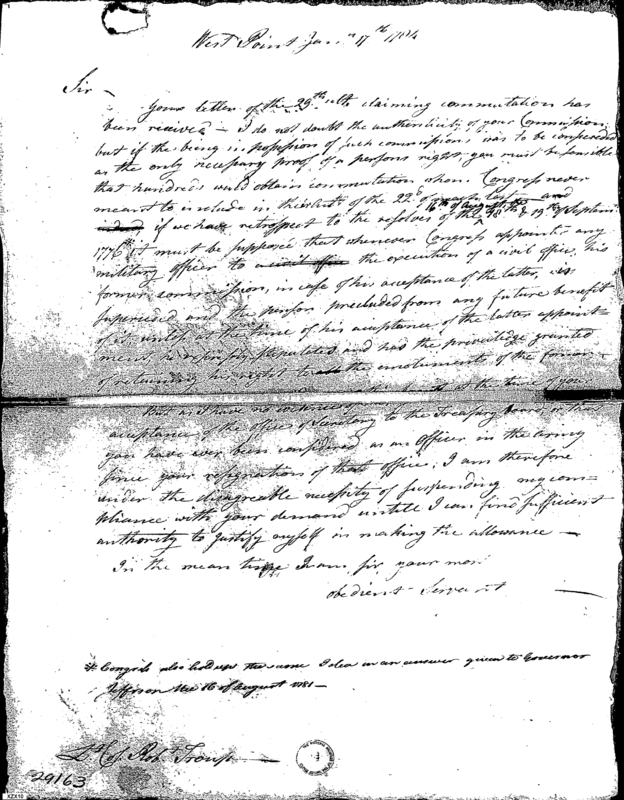 West Point Jan.y 17th 1784
Sir —
Your letter of the 29th ult. claiming commutation has
been received — I do not doubt the authenticity of your Commission
but if the being in possession of such commissions was to be considered
as the only necessary proof of a persons right, you must be sensible
that hundreds would obtain commutation whom Congress never
meant to include in their Acts of the 22d of march last — and
if we have retrospect to the resolves of the 16th of august & 19th of Septem
1776 it must be supposed that whenever Congress appoints any
military officer to a civil office the execution of a civil office, his
former commission, in case of his acceptance of the latter, is
superceded and the person precluded from any future benefit
of it unless at the time of his acceptance of the latter appoint=
ment, he expressly stipulated and had the priviledge granted
of retaining his right to the emoluments of the former
at the time of your
But as I have no
acceptance of the office of Secretary to the Treasury board, or that
you have ever been considered as an Officer in the army
since your resignation of that office; I am therefore
under the disagreable necessity of suspending my com=
pliance with your demand untill I can find sufficient
authority to justify myself in making the allowance —
In the mean time I am, sir, your most
obedient Servant —
* Congress also hold up the same Idea in an answer given to Governor
Jefferson the 16 of august 1781 —
Lt Col. Robt Troup —
29163